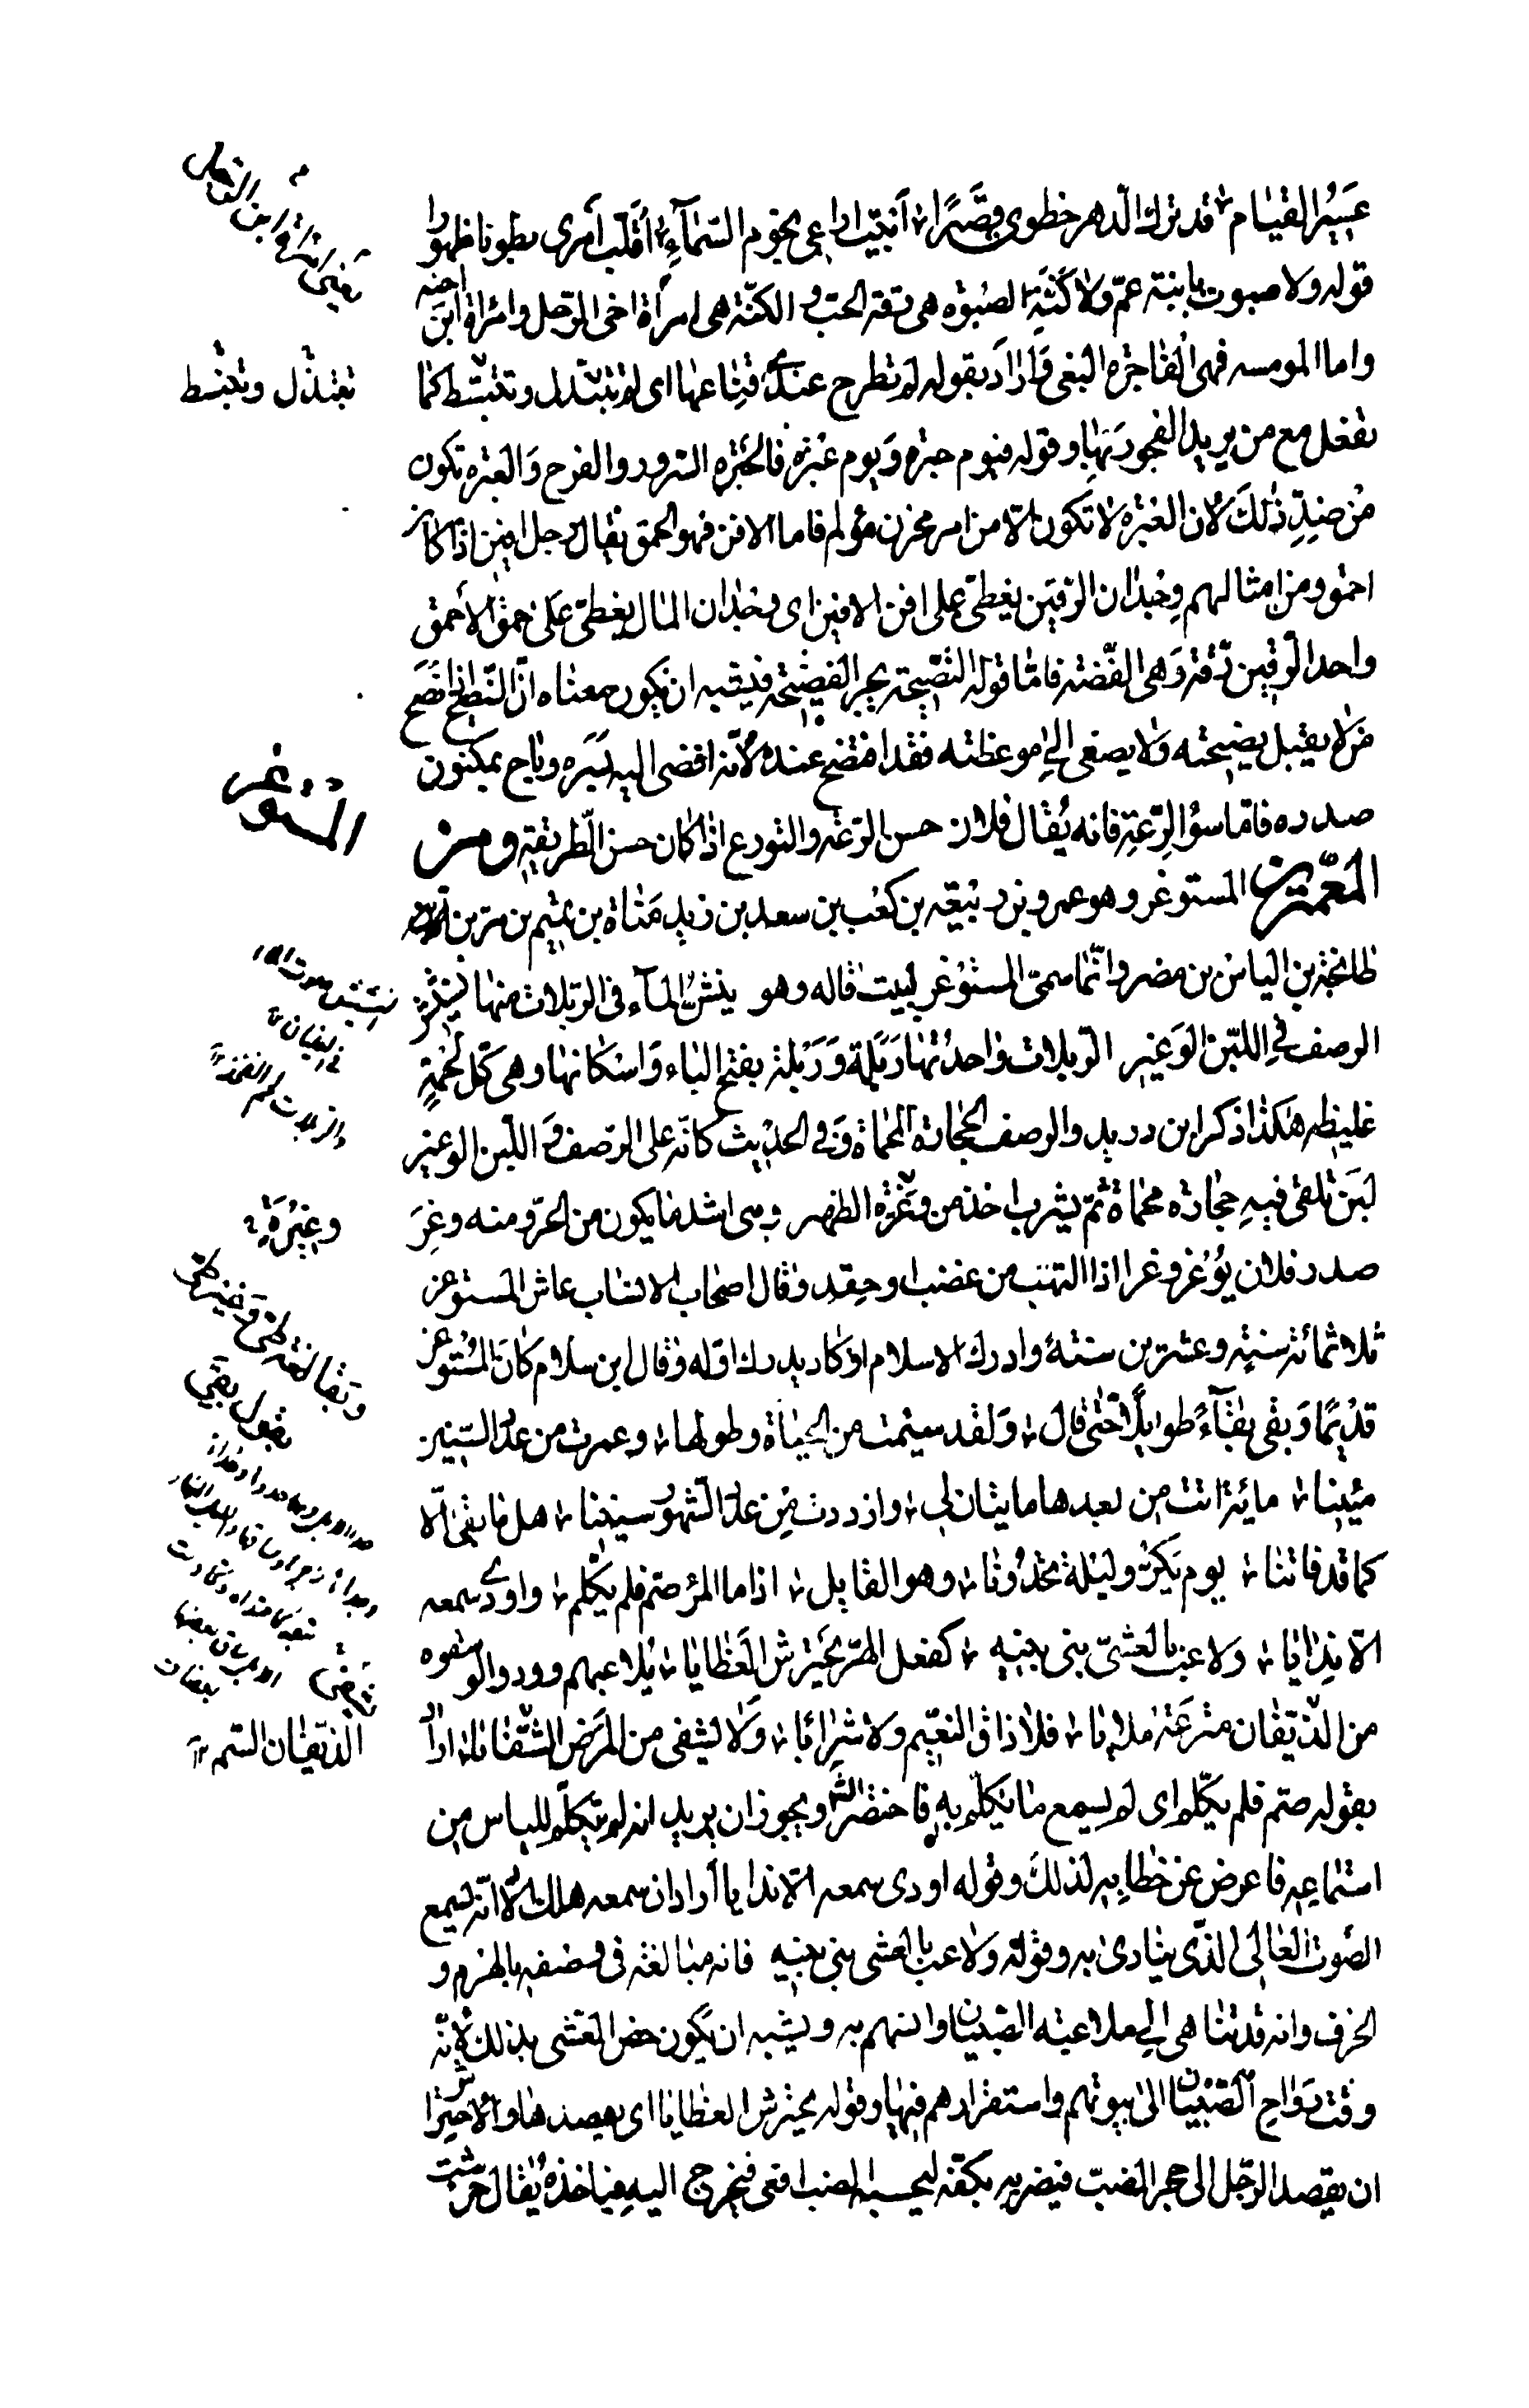 عَسِيرُ القيام ؛ قد ترك الدهر خطوى قصَّرًا ؛ اَبيت اراعى نجوم السّمآءِ ؛ اُقلّب اَمرى بطونا ظهورا
قوله ولا صبوت بابنة عمّ ولا كنّة الصبوة هى رقة الحب و الكنّة هى امرأة اخى الرّجل وامرأة ابن اخيه
واما المومسه فهى الفاجره البغى وَاَرادَ بقوله لم تطرح عندى قناعها اى لم تتبذل و تنبسّط كما
تبتذّل وتنبسط
تفعل مع من يريد الفجور بَهِا وقوله فيوم حبره وَيوم عبره فالحَبره السّرور والفرح وَالعبره تكون
مِن ضِدِّ ذلكَ لان العبره لا تكون الّا من امر محزن مؤلم فاما الافن فهو الحمق يقال رجل افين اذا كان
احمق ومن امثالهم وجدان الرّقين يغطى على افن الافين اى وجدان المال يغطى عَلى حمق الأحمق
واحد الرّقين رِقة وَهى الفّضة فامّا قوله النّصيحة يجر الفضيحه فيشبه ان يكون معناه انّ النّصح اذا نصح
من لا يقبل نصيحته ولا يصغى الى موعظته فقد افتضح عنده لأنّه افضى اليه بسَره وباح بمكنون
صدره فامّا سوُ الرّعة فانه يُقال فلان حسن الرّعه والتورع اذا كان حسن الطّريقة ومن
المستوغر
المعَمّرين المستوغر وهو عمرو بن ربيعه بن كعْب بن سعد بن زيد مَناة بن تميم بن مرّ بن ادّ بن
طابخة بن الياس بن مضر وانّما سمّى المستوغر لبيت قاله وهو ينشّ المآء فى الرّبلات منها نشيش
الرصف فى اللّبن الوَغير الرّبلات واحدتُها رَبَلة وَرَبْلة بفتح الباء وَاسكانها وهى كل لَحْمةٍ
غليظه هكذا ذكر ابن دريد والرصف الحجارة المحماة وَفى الحديث كانّه على الرّصف وَ اللّبن الوغير
لبَن تلقى فيهِ حجارة محماة ثمّ يشرب اخذ من وغرة الظهر وهى اشد ما يكون من الحرّ ومنه وغِرَ
وغيْرَةٍ
صدر فلان يوُغر وغرا اذا التهَب من غضب او حِقد وقال اصحاب الانساب عاش المستوغر
ثلاثمائة سنةٍ وعشرين سنةً وادرك الاسلام او كاد يدرك اوّله وقال ابن سلام كانَ المُستوغر
قدِيمًا وَبقى بقآءً طويلًا حَتّى قال ؛ وَلقد سئمت من الحياة وطولها ؛ وعمرت من عدد السّنين
بقول بقى
مئينا ؛ مائة اتت من بعدها مايتان لى ؛ وازددت مِن عدد الشّهور سنينا ؛ هل ما بقى الّا
كما قد فاتنا ؛ يوم يَكرّ وليلة تحدُونا ؛ وهو القايل ؛ اذا ما المرُ صمّ فلم يكّلم ؛ واودى سمعه
الّا ندايا ؛ ولاعب بالعشىّ بنى بنيه ؛ كفعل الهّر يحَترش العَظايا ؛ يُلاعبهم وودوا لو سقوه
من الذّيفان مترعَةً ملاِيا ؛ فلا ذاق النعيم ولا شرابا ؛ وَلا يشفى من المرَض الشفايا ؛ اراد
الذّيفان السّم
بقوله صمّ فلم يكّلم اى لم يسمع ما يكلّم به فاختصر ويجوز ان يريد انه لم يتكلم للياس من
استماعِه فاعرض عن خطابه لذلكَ وقوله اودى سمعه الّا ندايا اراد ان سمعه هلك الّا انّه يسمع
الصّوت العالى الذّى ينادى به وقوله ولاعب بالعشى بنى بنيه فانه مبالغه فى وصفه بالهرم و
الخرف وانه قد تناهى الى ملاعبة الصّبيان وانسهم به ويشبه ان يكون خص العشى بذلك لانّه
وقت رَواحِ الصّبيان الى بيوتهم واستقرارهم فيها وقوله يحترش العظايا اى يصيدها والاحتراش
ان يقصد الرّجل الى حجر الضّب فيضربه بكفّه ليحسبه الضب افعى فيخرج اليه فياخذه يُقال حرشت